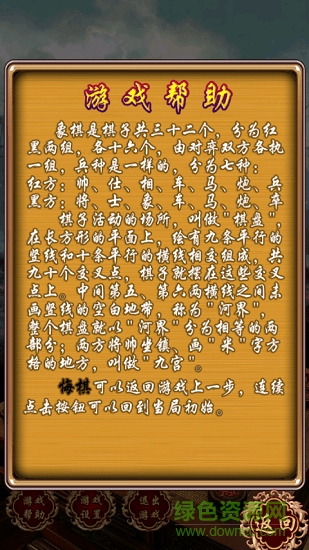 游戏帮助
象棋是棋子共三十二个，分为红
黑两组，各十六个，由对弈双方各执
一组，兵种是一样的，分为七种：
红方：帅、仕、相、车、马、炮、兵
黑方：将、士、象、车、马、炮、卒
棋子活动的场所，叫做“棋盘”，
在长方形的平面上，绘有九条平行的
竖线和十条平行的横线相交组成，共
九十个交叉点，棋子就摆在这些交叉
点上。中间第五、第六两横线之间未
画竖线的空白地带，称为“河界”，
整个棋盘就以“河界”分为相等的两
部分；两方将帅坐镇、画“米”字方
格的地方，叫做“九宫”。
悔棋可以返回游戏上一步，连续
点击按钮可以回到当局初始。
游戏
帮助
游戏
设置
退出
游戏
返回
绿色资源网